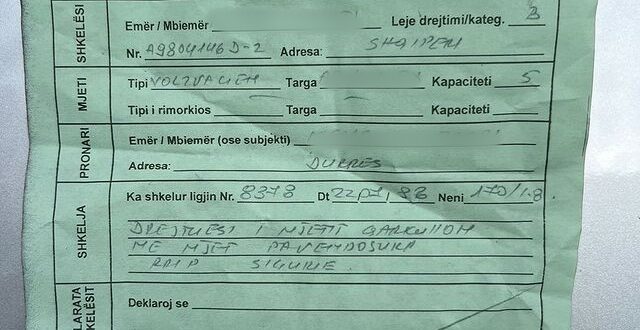 SHKELËSI
Emër / Mbiemër Leje drejtimi/kateg. B
Nr. A9804146D-2 Adresa: SHQIPERI
MJETI
Tipi VOLZVAGEN Targa Kapaciteti 5
Tipi i rimorkios Targa Kapaciteti
PRONARI
Emër / Mbiemër (ose subjekti)
Adresa: DURRES
SHKELJA
Ka shkelur ligjin Nr. 8378 Dt 22.07.98 Neni 170/1-8
DREJTUESI I MJETIT QARKULLON
ME MJET PA VENDOSUR
RRIP SIGURIE.
LARATA
KELËSIT
Deklaroj se